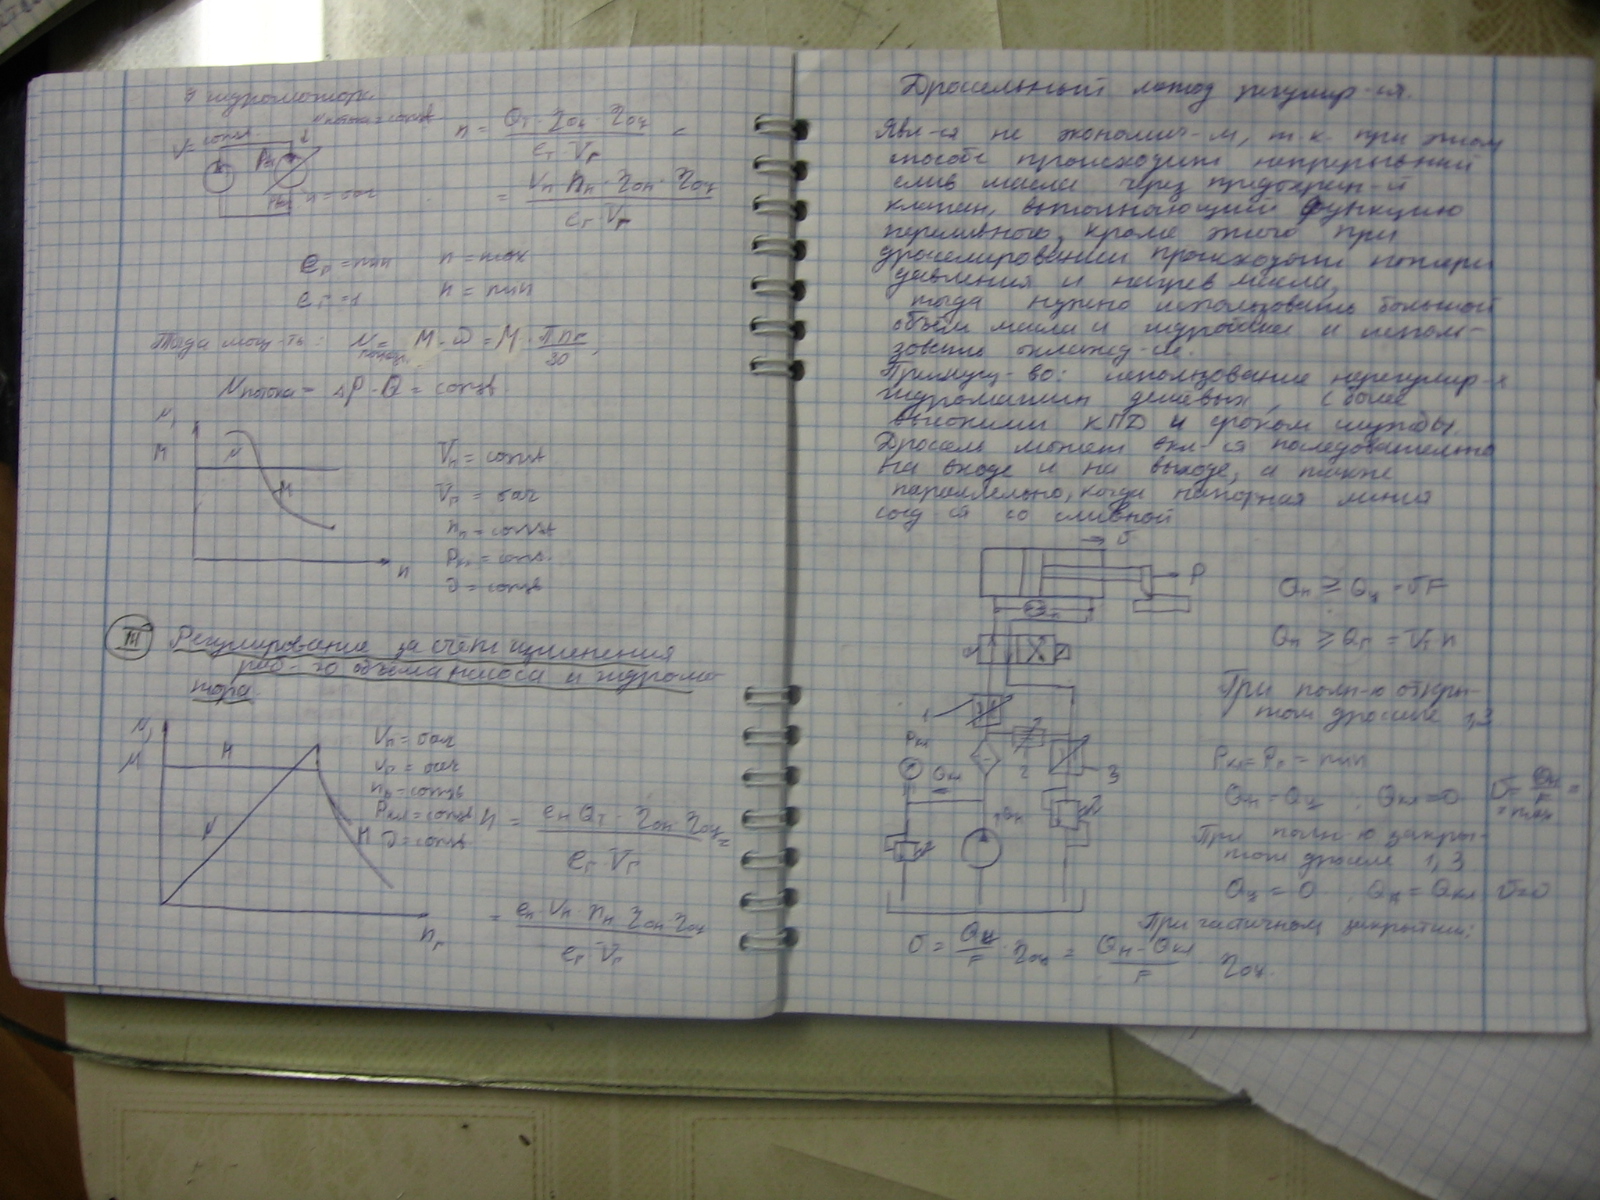 гидромотора
V = const
n = Qт · ηон · ηоц / eг Vг =
= Vн nн · ηон · ηоц / eг Vг
eг = min n = max
eг = 1 n = min
Тогда мощ-ть: N = M · ω = M · π nг / 30
Nпотока = ΔP · Q = const
N,
M
N
M
n
Vн = const
Vг = var
nн = const
Pкл = const
D = const
III Регулирование за счет изменения
раб-го объема насоса и гидромо-
тора.
N,
M
M
N
M
nг
Vн = var
Vг = var
nн = const
Pкл = const
D = const
n = eн Qт · ηон · ηоц / eг Vг =
= eн Vн · nн · ηон · ηоц / eг Vг
Дросельный метод регулир-ия.
Явл-ся не экономич-м, т.к. при этом
способе происходит непрерывный
слив масла через предохран-й
клапан, выполняющий функцию
переливного, кроме этого при
дроселировании происходят потери
давления и нагрев масла,
тогда нужно использовать большой
объем масла и гидробак и исполь-
зовать охлажд-ие.
Преимущ-во: использование нерегулир-х
гидромашин дешевых, с более
высокими КПД и сроком службы.
Дросель может вкл-ся последовательно
на входе и на выходе, а также
параллельно, когда напорная линия
соед-ся со сливной
υ
P
Qн ≥ Qц = υF
Qн ≥ Qг = Vг n
1
При полн-ю откры-
том дроселе 1,3
Pкл
Qкл
2
3
Qн
Pкл = Pн = min
Qн = Qц, Qкл = 0 υ = Qн / F =
= max
При полн-ю закры-
том дроселе 1,3
Qц = 0, Qн = Qкл υ=0
При частичном закрытии:
υ = Qц / F · ηоц = Qн - Qкл / F ηоц.